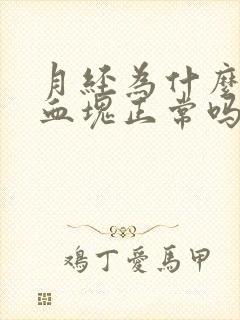 月经為什麼
血塊正常吗
鴻丁愛馬甲